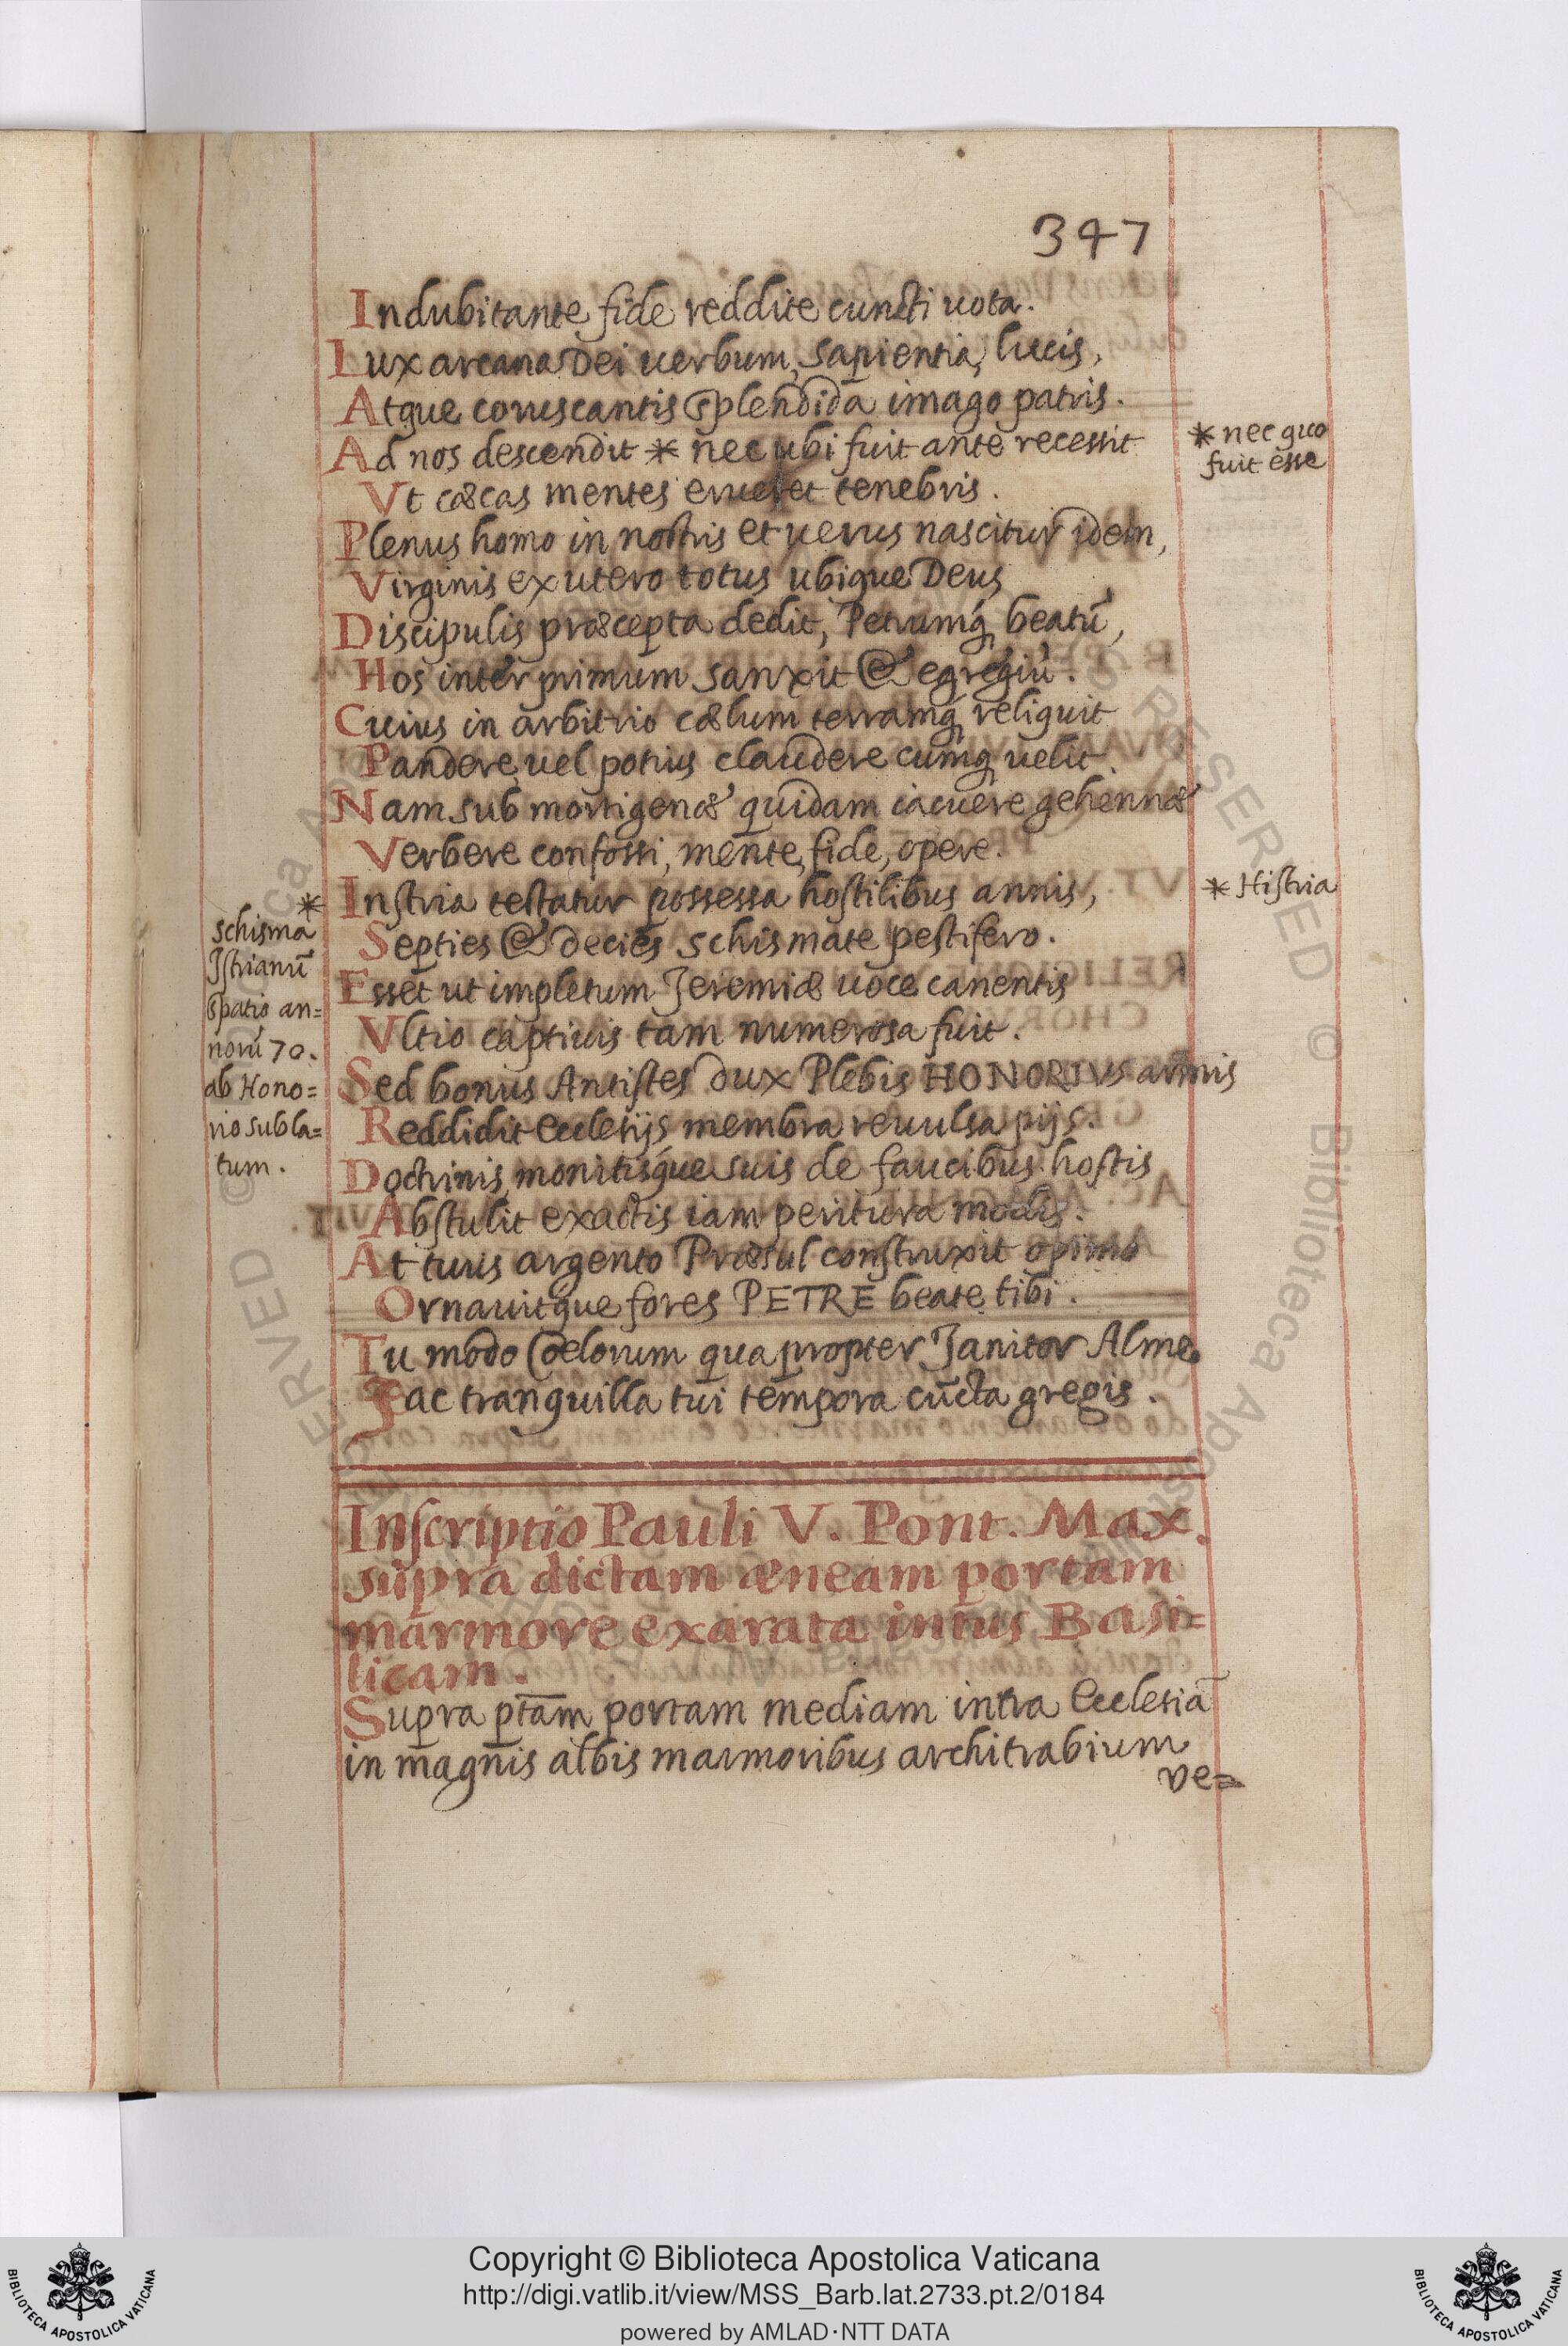 347
Indubitante fide reddite cuncti uota.
Lux arcana Dei uerbum, sapientia, lucis,
Atque coruscantis splendida imago patris.
Ad nos descendit * nec ubi fuit ante recessit
* nec quo
fuit esse
Vt cæcas mentes erueret tenebris.
Plenus homo in nostris et uerus nascitur idem,
Virginis ex utero totus ubique Deus
Discipulis præcepta dedit, Petrumq́ beatū,
Hos inter primum sanxit & egregiū.
Cuius in arbitrio cælum terramq́ reliquit
Pandere, uel potius claudere cumq́ uelit.
Nam sub mortigenæ quidam iacuere gehennæ
Verbere confossi, mente, fide, opere.
Instria testatur possessa hostilibus annis,
* Histria
Septies & decies schismate pestifero.
Esset ut impletum Jeremiæ uoce canentis
Vltio captiuis tam numerosa fuit.
Sed bonus Antistes dux Plebis HONORIVS armis
Reddidit ecclesijs membra reuulsa pijs.
Doctrinis, monitisq́ue suis de faucibus hostis
Abstulit exactis iam peritura modis.
At tuus argento Præsul construxit opimo
Ornauitque fores PETRE beate tibi.
Tu modo Coelorum quapropter Janitor Alme
Fac tranquilla tui tempora cūcta gregis.
*
schisma
Jstrianū
spatio an=
norū 70.
ab Hono=
rio subla=
tum.
Inscriptio Pauli V. Pont. Max.
supra dictam æneam portam
marmore exarata intus Basi=
licam.
Supra p̄tam portam mediam intra Ecclesiā
in magnis albis marmoribus architrabium
ve=
Copyright © Biblioteca Apostolica Vaticana
http://digi.vatlib.it/view/MSS_Barb.lat.2733.pt.2/0184
powered by AMLAD·NTT DATA
BIBLIOTECA APOSTOLICA VATICANA
BIBLIOTECA APOSTOLICA VATICANA